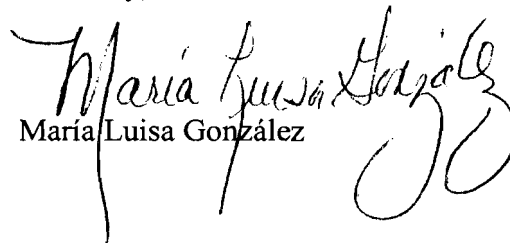 María Luisa González
María Luisa González